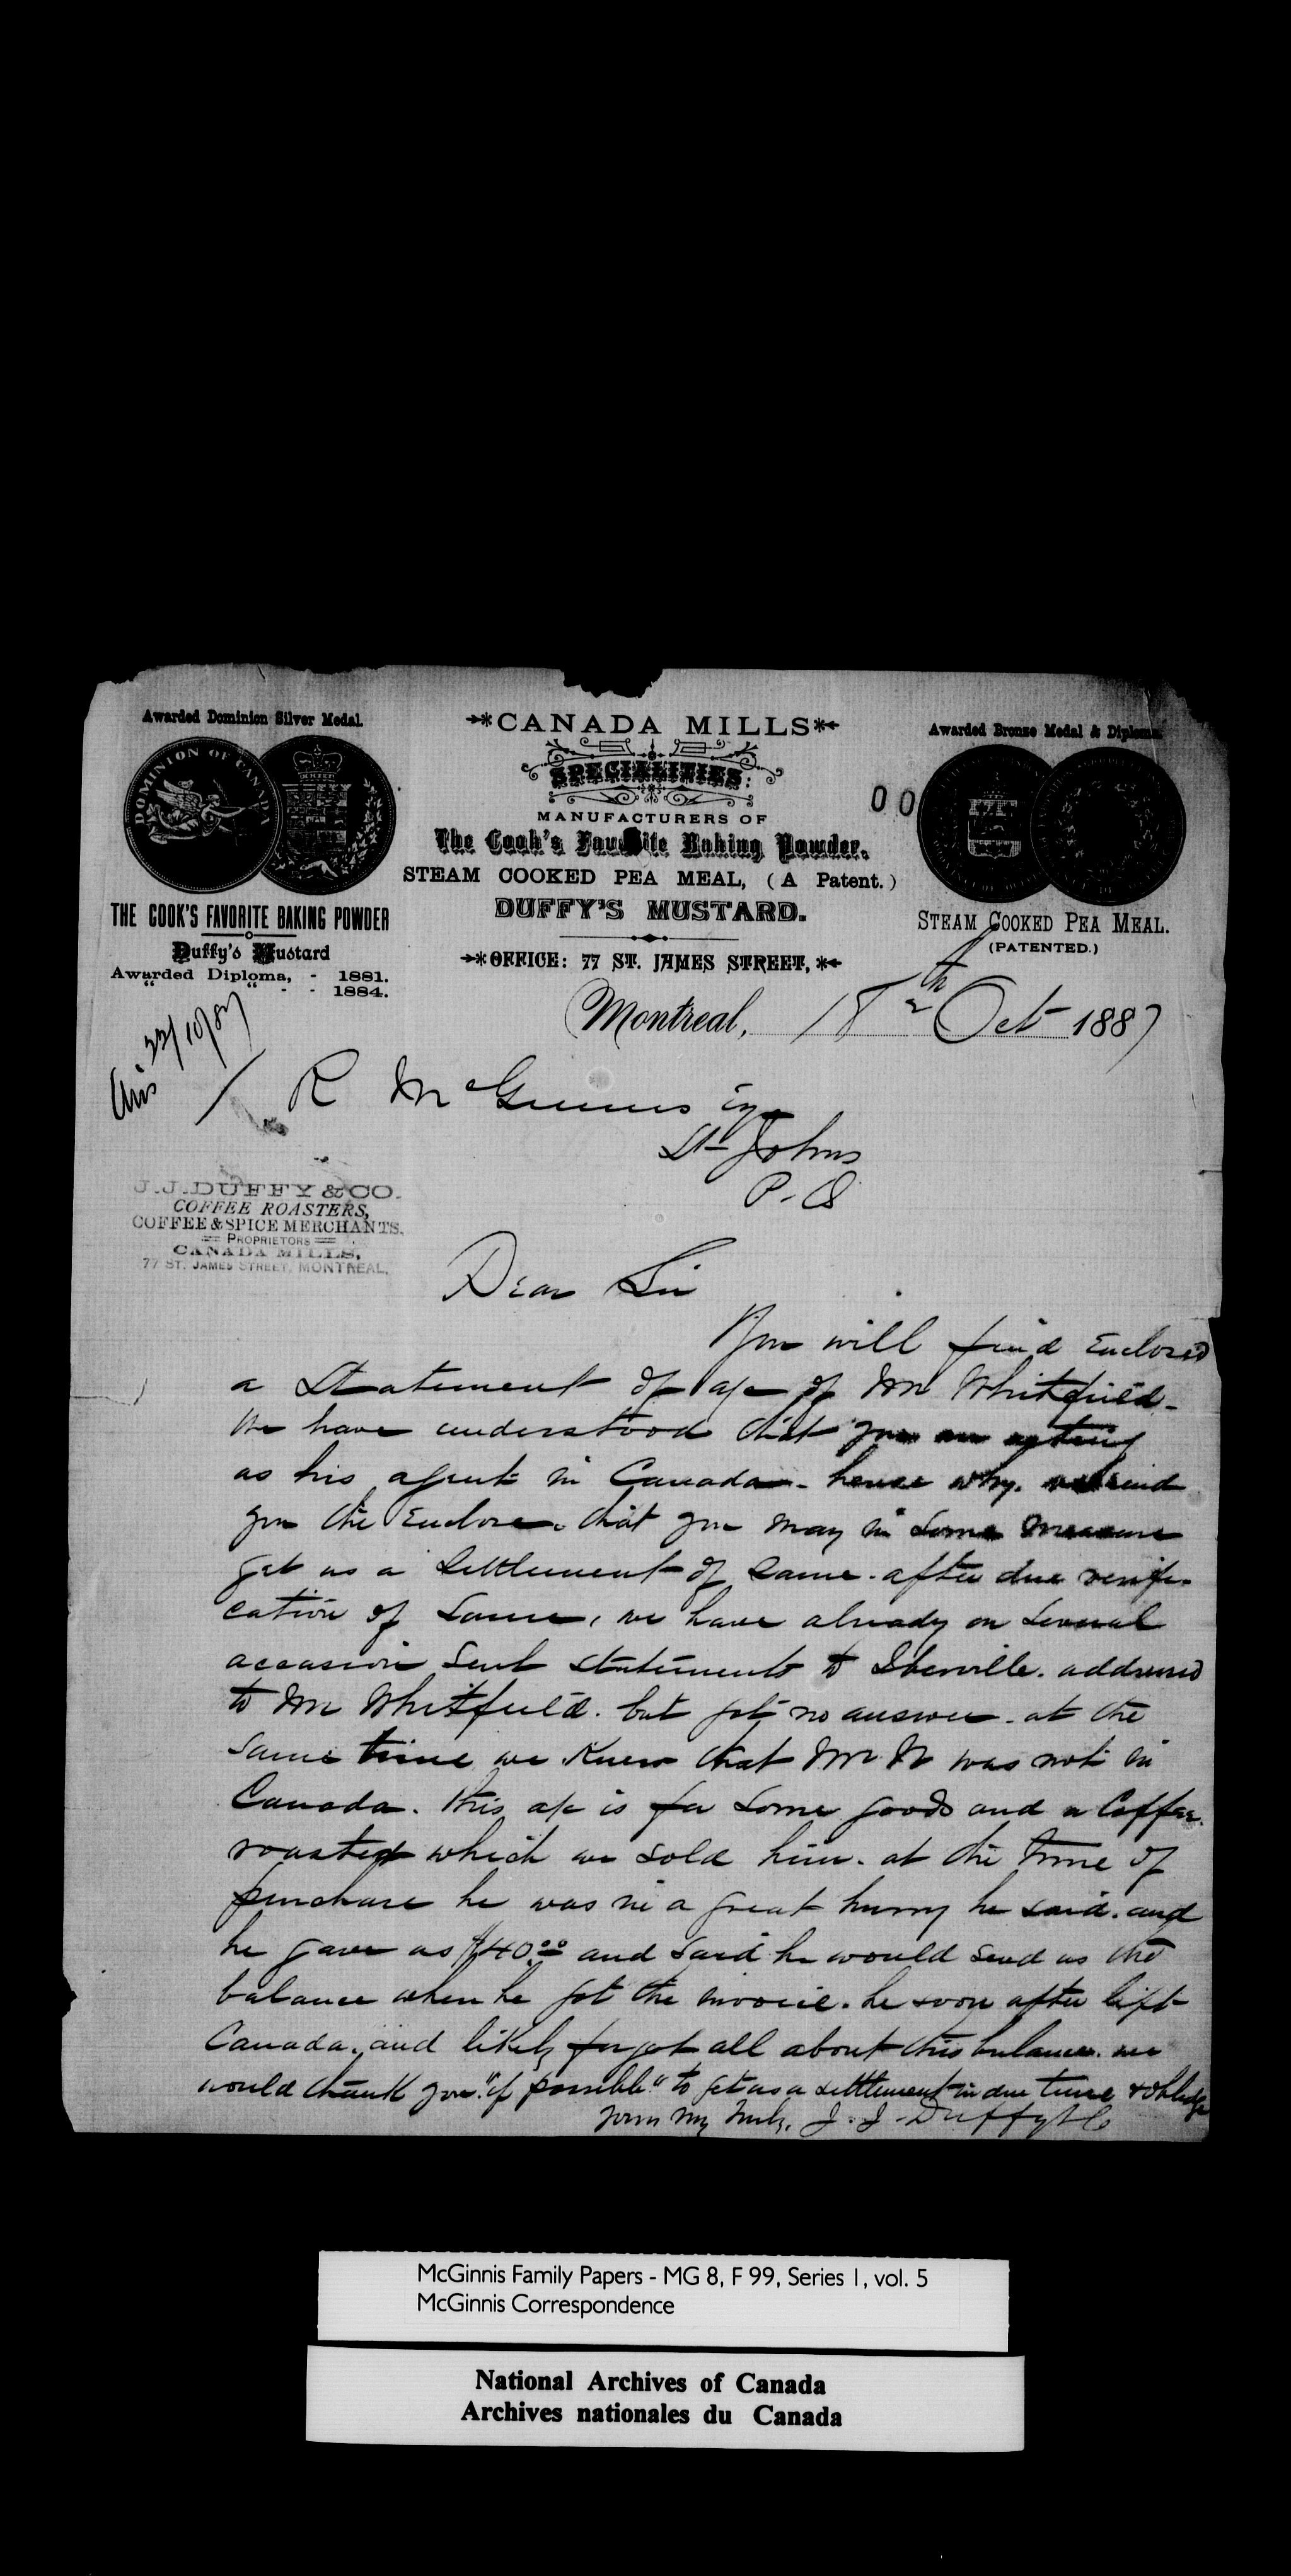 Awarded Dominion Silver Medal.
DOMINION OF CANADA
THE COOK'S FAVORITE BAKING POWDER
Duffy's Mustard
Awarded Diploma, - 1881.
" " - - 1884.
→*CANADA MILLS*←
SPECIALITIES:
MANUFACTURERS OF
The Cook's Favorite Baking Powder,
STEAM COOKED PEA MEAL, (A Patent.)
DUFFY'S MUSTARD.
→*OFFICE: 77 ST. JAMES STREET,*←
00
Awarded Bronze Medal & Diploma.
STEAM COOKED PEA MEAL.
(PATENTED.)
Montreal, 18th Oct 1887
Ans 22/10/87
R McGinnis
St Johns
P.Q
J.J. DUFFY & CO.
COFFEE ROASTERS,
COFFEE & SPICE MERCHANTS,
PROPRIETORS
CANADA MILLS,
77 ST. JAMES STREET, MONTREAL.
Dear Sir
You will find Enclosed
a Statement of a/c of Mr Whitfield.
We have understood that you are acting
as his agent in Canada. hence why we send
you the Enclose. that you may in some measure
get us a Settlement of same. after due verifi-
cation of same, we have already on several
accasion sent statements to Iberville. addressed
to Mr Whitfield. but got no answer. at the
same time we Knew that Mr W was not in
Canada. this a/c is for some goods and a Coffee
roaster which we sold him. at the time of
purchase he was in a great hurry he said. and
he gave us $40.00 and said he would send us the
balance when he got the invoice. he soon after left
Canada. and likely forgot all about this balance. we
would thank you "if possible" to get us a settlement in due time & oblige
yours my truly. J. J. Duffy & Co
McGinnis Family Papers - MG 8, F 99, Series 1, vol. 5
McGinnis Correspondence
National Archives of Canada
Archives nationales du Canada